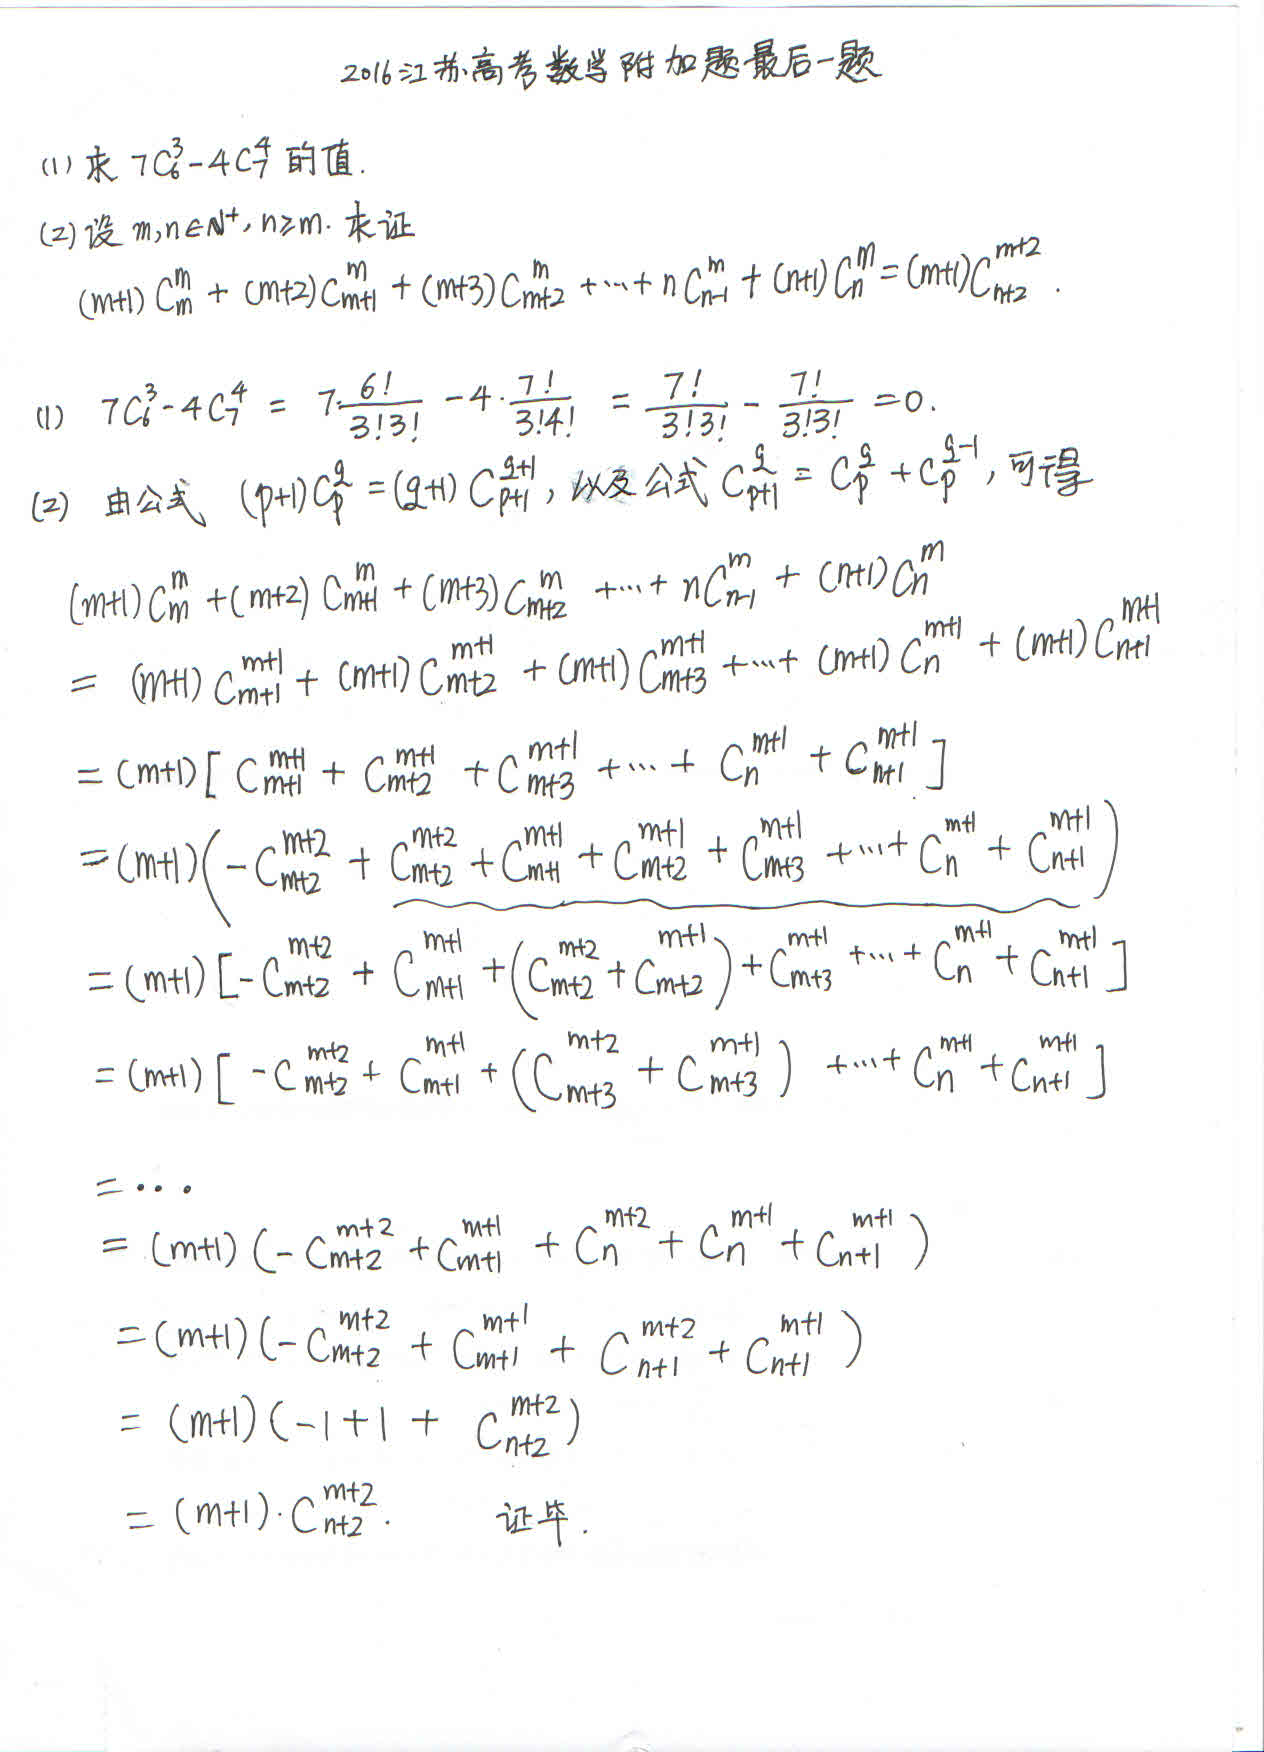 2016江苏高考数学附加题最后一题
(1) 求 7C_6^3 - 4C_7^4 的值.
(2) 设 m,n∈N^+, n≥m. 求证
(m+1)C_m^m + (m+2)C_{m+1}^m + (m+3)C_{m+2}^m + ... + nC_{n-1}^m + (n+1)C_n^m = (m+1)C_{n+2}^{m+2}.
(1) 7C_6^3 - 4C_7^4 = 7·6!/(3!3!) - 4·7!/(3!4!) = 7!/(3!3!) - 7!/(3!3!) = 0.
(2) 由公式 (p+1)C_p^q = (q+1)C_{p+1}^{q+1}, 以及公式 C_{p+1}^q = C_p^q + C_p^{q-1}, 可得
(m+1)C_m^m + (m+2)C_{m+1}^m + (m+3)C_{m+2}^m + ... + nC_{n-1}^m + (n+1)C_n^m
= (m+1)C_{m+1}^{m+1} + (m+1)C_{m+2}^{m+1} + (m+1)C_{m+3}^{m+1} + ... + (m+1)C_n^{m+1} + (m+1)C_{n+1}^{m+1}
= (m+1)[C_{m+1}^{m+1} + C_{m+2}^{m+1} + C_{m+3}^{m+1} + ... + C_n^{m+1} + C_{n+1}^{m+1}]
= (m+1)(-C_{m+2}^{m+2} + C_{m+2}^{m+2} + C_{m+1}^{m+1} + C_{m+2}^{m+1} + C_{m+3}^{m+1} + ... + C_n^{m+1} + C_{n+1}^{m+1})
= (m+1)[-C_{m+2}^{m+2} + C_{m+1}^{m+1} + (C_{m+2}^{m+2} + C_{m+2}^{m+1}) + C_{m+3}^{m+1} + ... + C_n^{m+1} + C_{n+1}^{m+1}]
= (m+1)[-C_{m+2}^{m+2} + C_{m+1}^{m+1} + (C_{m+3}^{m+2} + C_{m+3}^{m+1}) + ... + C_n^{m+1} + C_{n+1}^{m+1}]
= ...
= (m+1)(-C_{m+2}^{m+2} + C_{m+1}^{m+1} + C_n^{m+2} + C_n^{m+1} + C_{n+1}^{m+1})
= (m+1)(-C_{m+2}^{m+2} + C_{m+1}^{m+1} + C_{n+1}^{m+2} + C_{n+1}^{m+1})
= (m+1)(-1+1+ C_{n+2}^{m+2})
= (m+1)·C_{n+2}^{m+2}. 证毕.